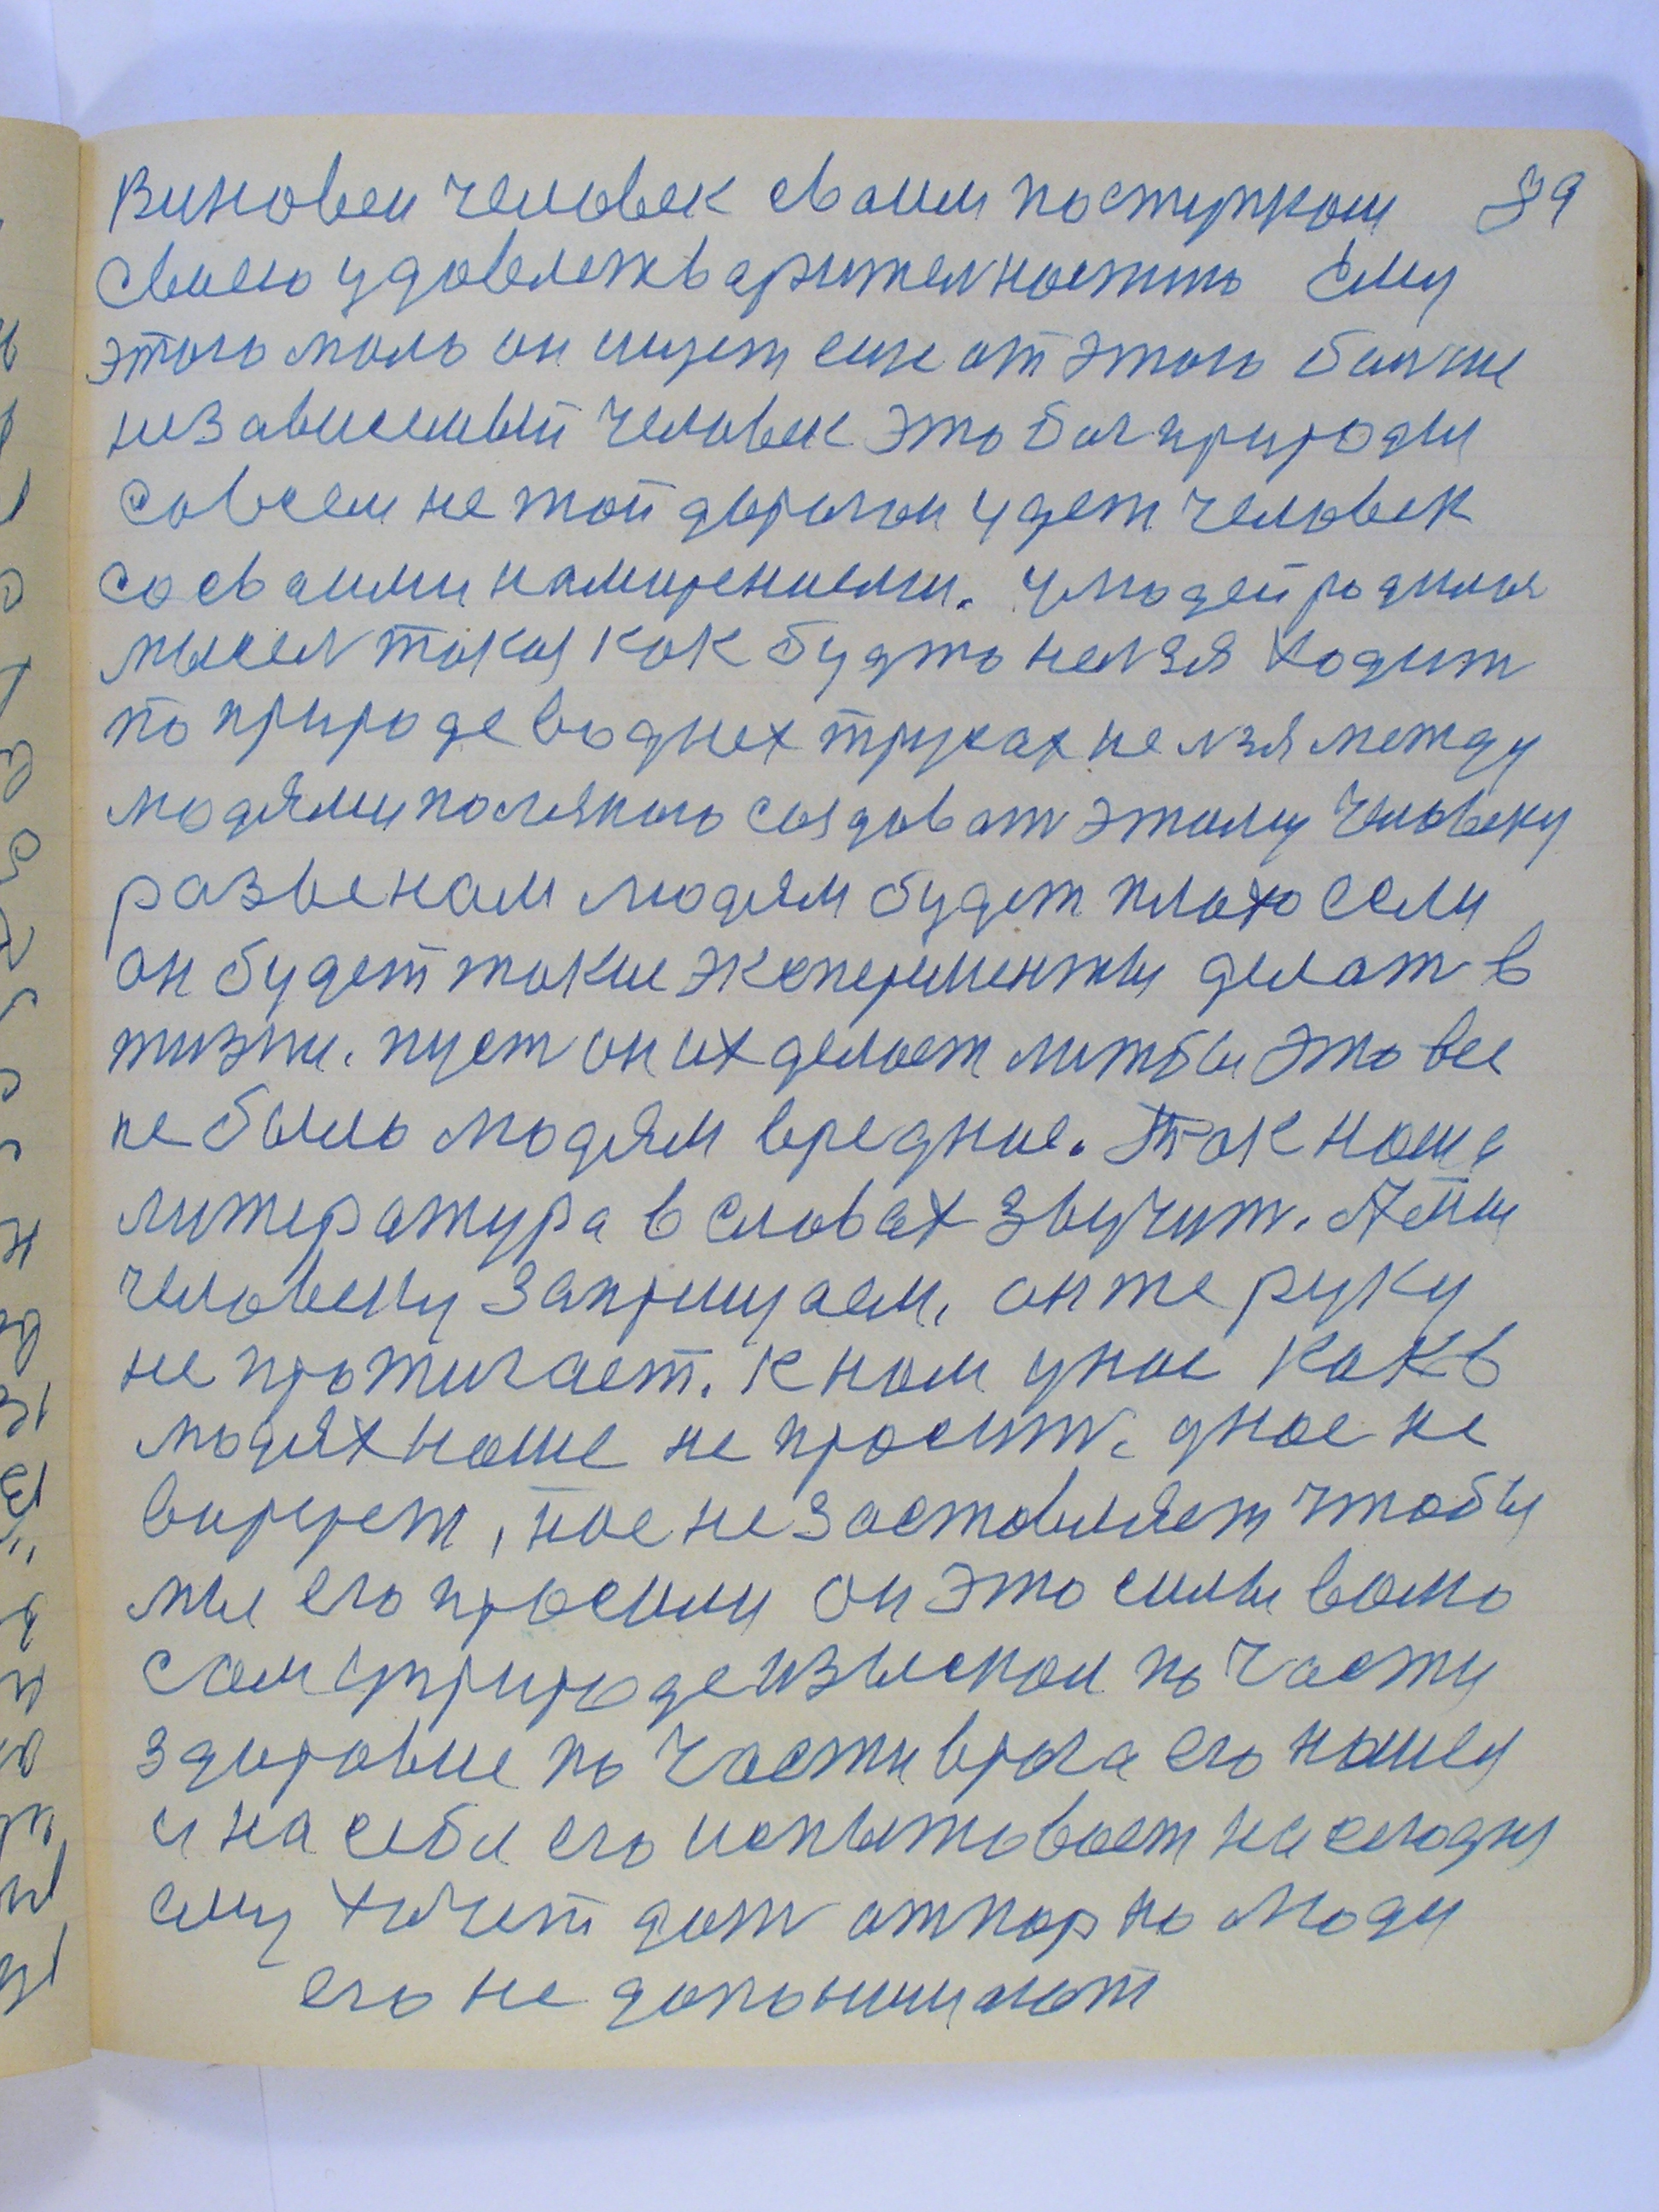 Виновен человек сваим поступком 89
своею удовелетварителностью ему
этого мало он ищет еще от этого болше
независемый человек это бог природы
совсем не той дорогои идет человек
со сваими намирениеми. у людей родилоя
мысел такая как будто нелзя ходит
по природе водних трусах нелзя между
людями полякого создоват этому человеку
развенам людям будет плохо если
он будет такие эксперименты делат в
жизни. пуст он их делает литбы это все
не было людям вредние. Так наша
литература в словах звучит. А мы
человеку заприщаем, он же руку
не протигает. к нам у нас как в
людях наше не просит. у нас не
варует, нас не заставляет чтобы
мы его просили он это силы вомо
сам у природе изыскал по части
здоровие по части врага его нашел
и на себе его испытовает на сегодня
ему хочет дат отпор но люди
его не допонимают